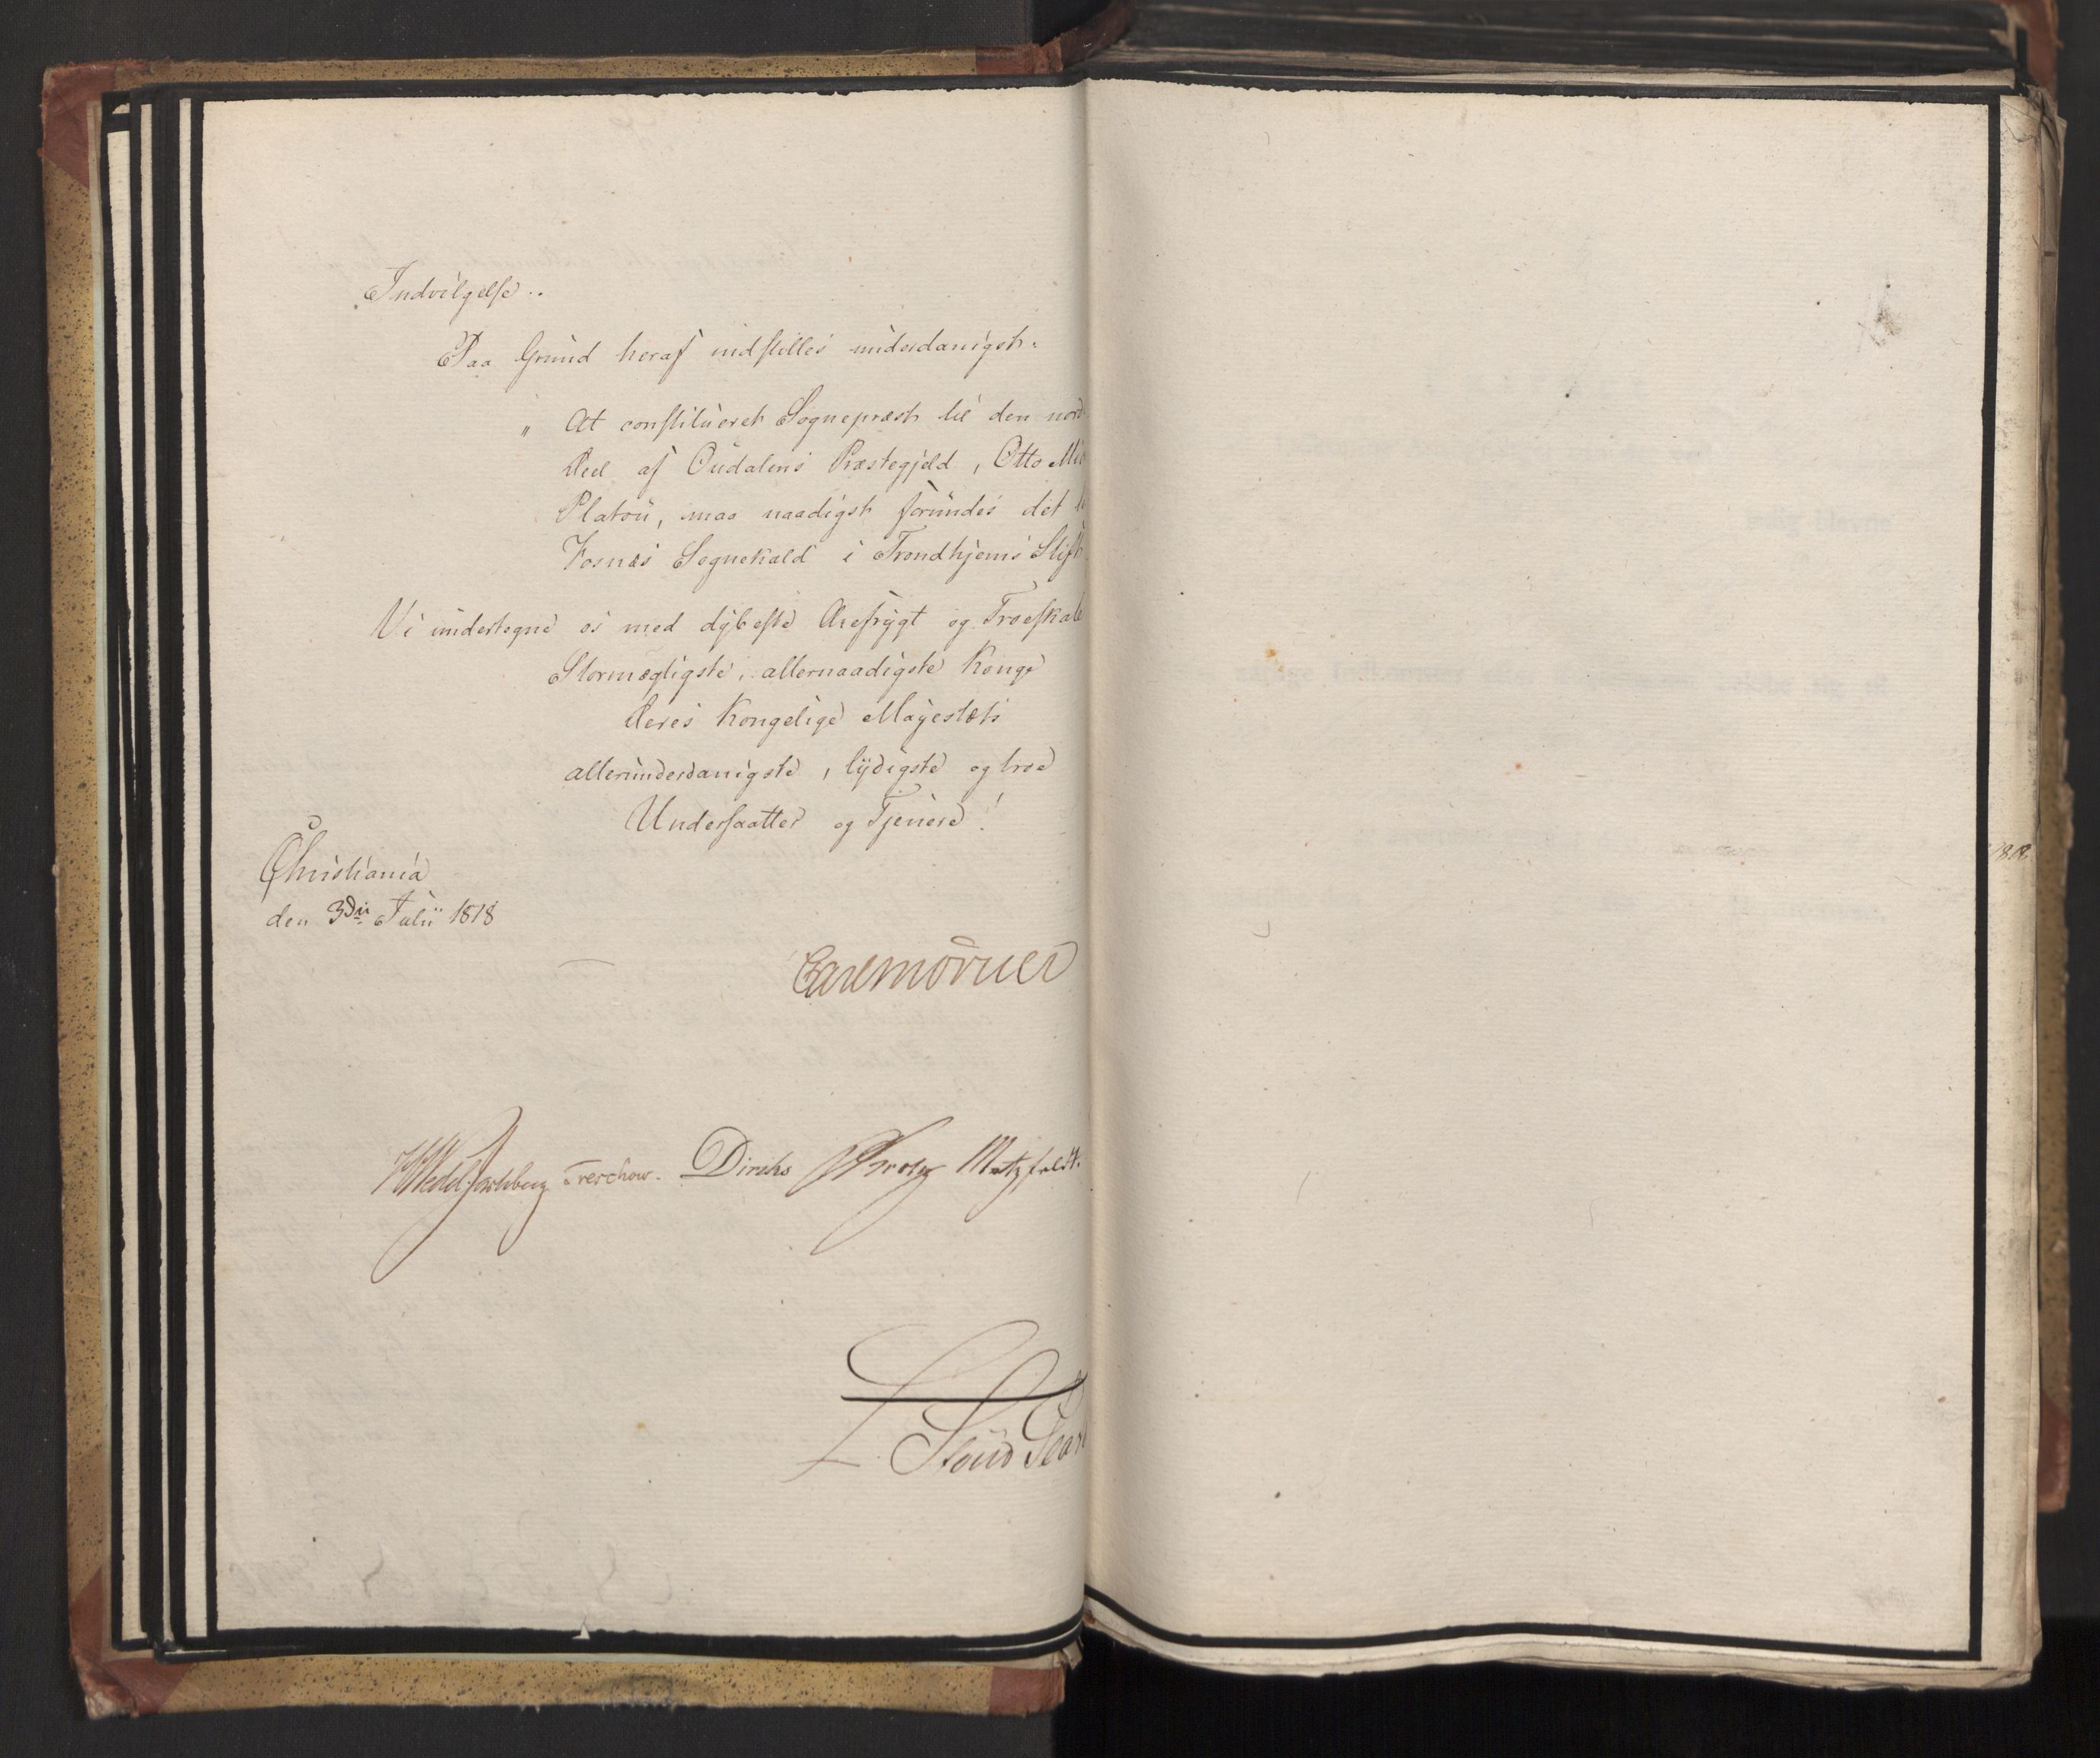 Indvilgelse.
Paa Grund heraf indstilles underdanigst:
" At constitueret Sognepræst til den nord
Deel af Oudalens Præstegjeld, Otto
Platou, maa naadigst forundes det
Fosnæs Sognekald i Trondhjems Stift
Vi undertegne os med dybeste Ærefrygt og Troeskab
Stormægtigste, allernaadigste Konge
Deres Kongelige Majestæts
allerunderdanigste, lydigste og troe
Undersaatter og Tjenere!
Christiania
den 3die Julii 1818
Carl Mörner
HWedel Jarlsberg Treschow. Diriks Motzfeldt.